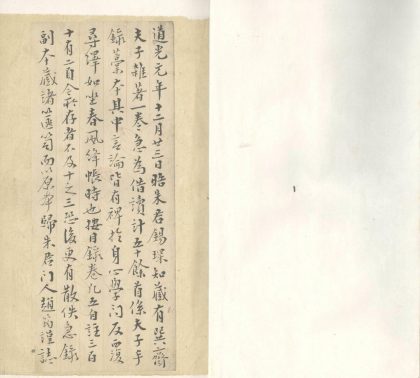 道光元年十二月廿三日晤朱君錫琛知藏有巽齋
夫子雜著一卷急為借讀計五十餘首係夫子手
錄藁本其中言論皆有裨於身心學問反復
尋繹如坐春風絳帳時也按目錄卷凡五自註三百
十有二首今所存者不及十之三恐復更有散佚急錄
副本藏諸篋笥而以原本歸朱君門人趙筠謹誌